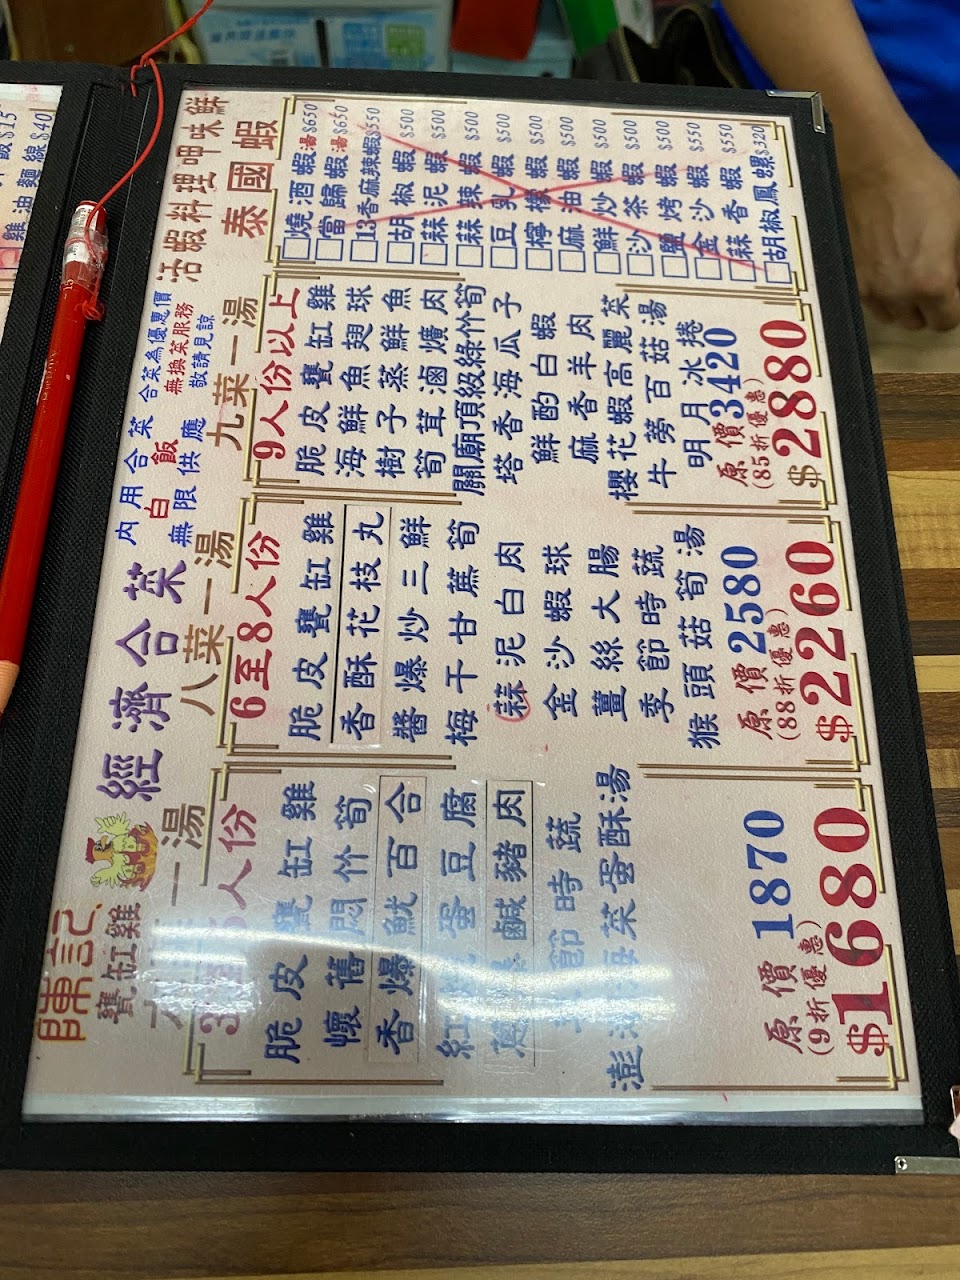 飯$15
雞油麵線$40
陳記
甕缸雞
經濟合菜
內用合菜
白飯
無限供應
合菜為優惠價
無換菜服務
敬請見諒
活蝦料理呷味鮮
一湯
人份
脆皮甕缸雞
懷舊悶竹筍
香爆魷百合
紅 蛋豆腐
鹹豬肉
節時蔬
澎湖海菜蛋酥湯
原價1870
(9折優惠)
$1680
八菜一湯
6至8人份
脆皮甕缸雞
香酥花枝丸
醬爆炒三鮮
梅干甘蔗筍
蒜泥白肉
金沙蝦球
薑絲大腸
季節時蔬
猴頭菇筍湯
原價2580
(88折優惠)
$2260
九菜一湯
9人份以上
脆皮甕缸雞
海鮮魚翅球
樹子蒸鮮魚
筍茸滷爌肉
關廟頂級綠竹筍
塔香海瓜子
鮮酌白蝦
麻香羊肉
櫻花蝦高麗菜
牛蒡百菇湯
明月冰捲
原價3420
(85折優惠)
$2880
泰國蝦
□燒酒蝦湯$650
□當歸蝦湯$650
□13香麻辣蝦$550
□胡椒蝦 $500
□蒜泥蝦 $500
□蒜辣蝦 $500
□豆乳蝦 $500
□檸檬蝦 $500
□麻油蝦 $500
□鮮炒蝦 $500
□沙茶蝦 $500
□鹽烤蝦 $500
□金沙蝦 $550
□蒜香蝦 $550
□胡椒鳳螺$320